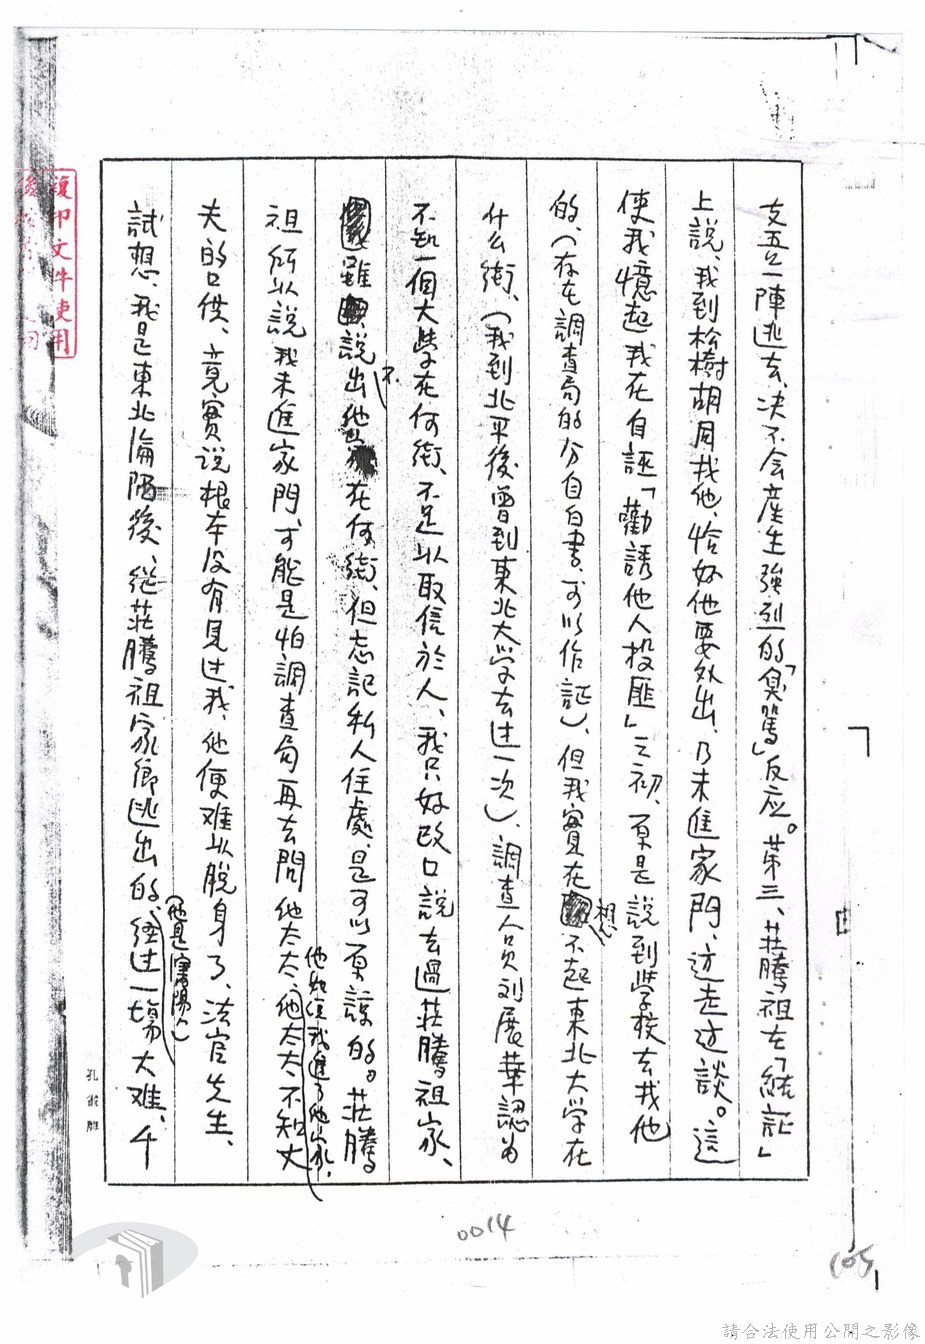 支五一陣逃去、决不会産生強烈的「臭罵」反应。第三、莊騰祖在「結証」
上說、我到松樹胡同找他、恰好他要外出、乃未進家門、边走边談。這
使我憶起我在自誣「勸誘他人投匪」之初、原是說到學校去找他
的、(存在調查局的分自白書、可以作証)、但我實在想不起東北大学在
什么街、(我到北平後曾到東北大学去过一次)、調查人员刘展華認为
不知一個大學在何街、不足以取信於人、我只好改口說去過莊騰祖家、
雖說不出他家在何街、但忘記私人住處、是可以原諒的。莊騰
祖所以說我未進家門、可能是怕調查局再去問他太太、他如说我進了他的家,他太太不知丈
夫的口供、竟實说根本没有見过我、他便难以脱身了、法官先生、
試想、我是東北淪陷後、從莊騰祖家鄉逃出的、(他是瀋陽人)经过一場大难、千
複印文件使用
0014
105
請合法使用公開之影像